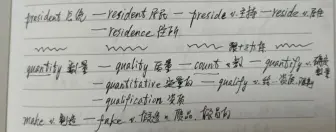 president 总统 — resident 居民 — preside v. 主持 — reside v. 居住
— residence 住所
quantity 数量 — quality 质量 — count v. 数 — quantify v.
— quantitative 数量的 — qualify v.
— qualification 资格
make v. 制造 — fake v. 伪造 n. 赝品